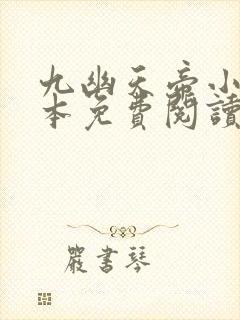 九幽天帝小
本免費閱讀
嚴書琴